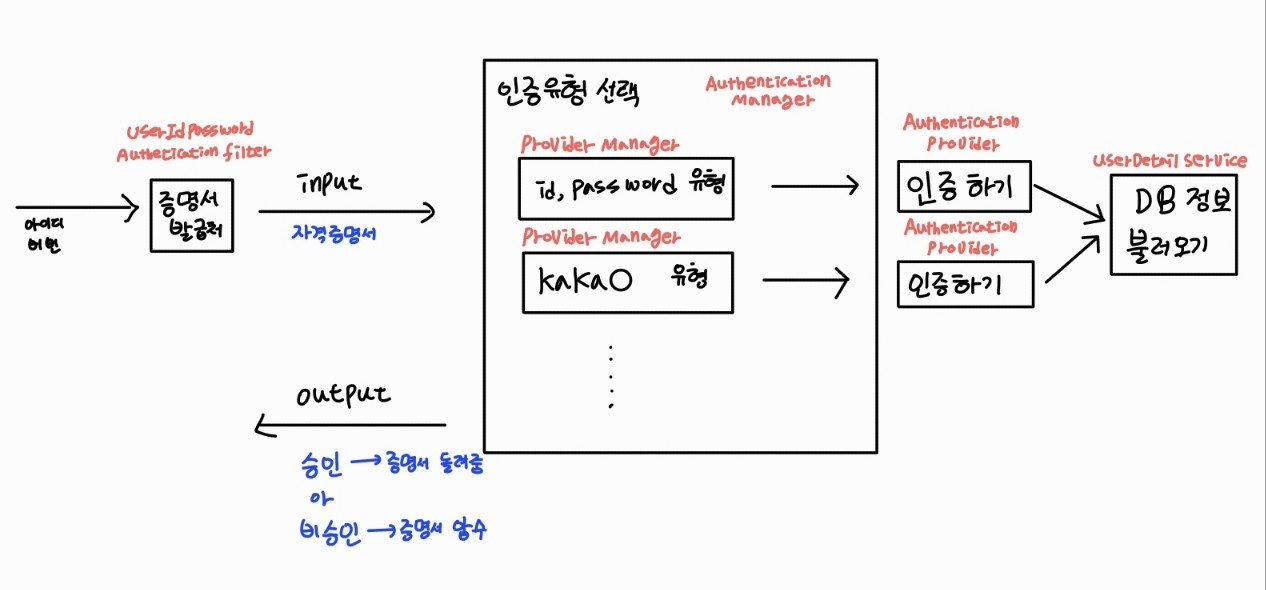 UserIdPassword
Authetication filter
증명서
발급처
아이디
비번
input
자격증명서
인증유형 선택
Authentication
Manager
Provider Manager
id, password 유형
Provider Manager
kakao 유형
Authentication
Provider
인증하기
Authentication
Provider
인증하기
UserDetail Service
DB 정보
불러오기
output
승인 → 증명서 돌려줌
아
비승인 → 증명서 압수